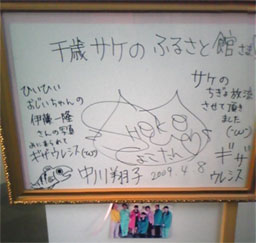 千歳サケのふるさと館さま
ひいひい
おじいちゃんの
伊藤一隆
さんの写真
みにまられて
ギザウレシス(´ω`)
SHOKO
しょこたん
サケの
ちぎょ放流
させて頂き
ました
(´ω`)
ギザ
ウレシス
中川翔子
2009.4.8